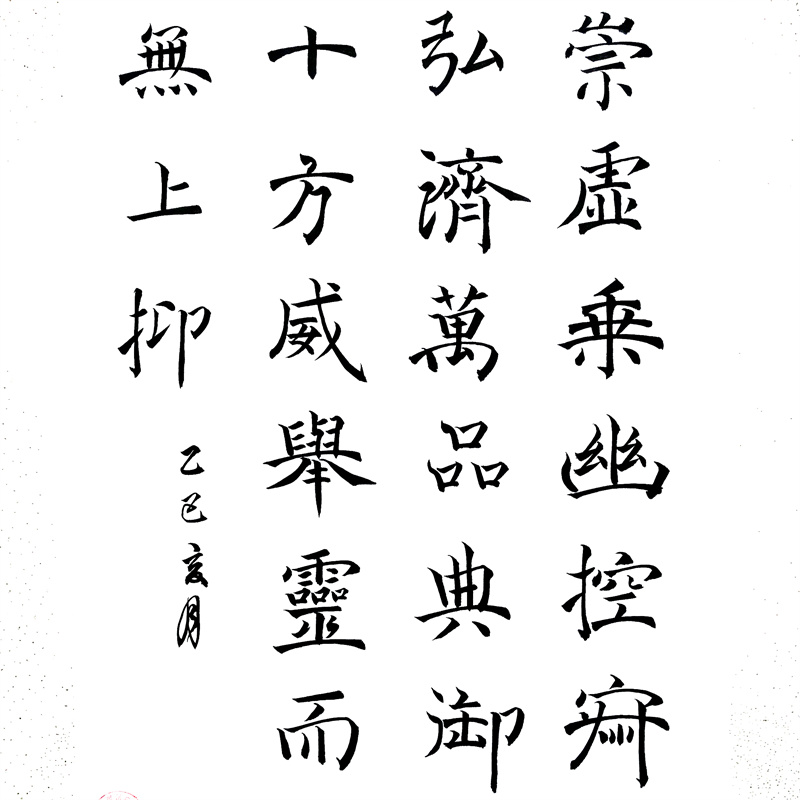 崇虛乘幽控寂
弘濟萬品典御
十方威舉靈而
無上抑
乙巳亥月